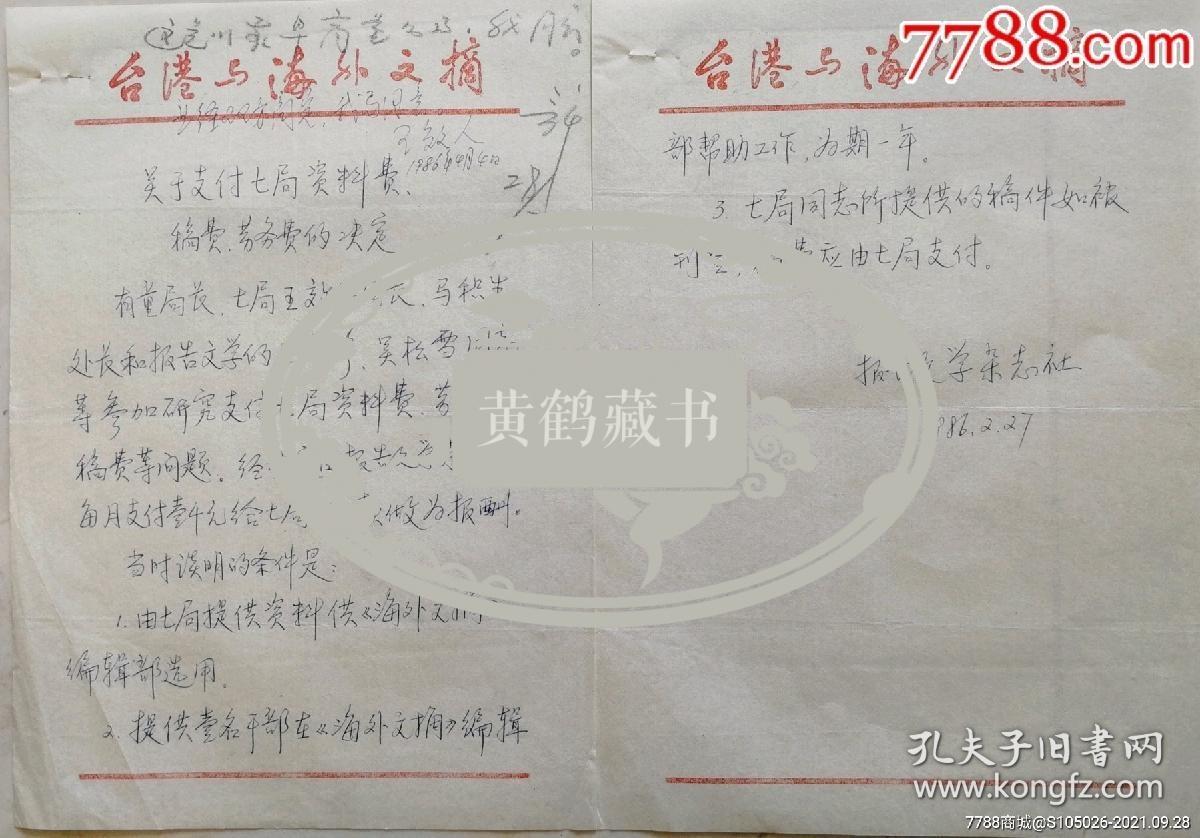 台港与海外文摘
王效人
1986年4月4日
关于支付七局资料费、
稿费、劳务费的决定
有董局长、七局王效 马积
处长和报告文学的 吴松雪同志
等参加研究支付 局资料费、劳
稿费等问题。经
每月支付壹千元给七局 做为报酬。
当时谈明的条件是：
1.由七局提供资料供《海外文摘
编辑部选用。
2.提供壹名干部在《海外文摘》编辑
台港与海外文摘
部帮助工作，为期一年。
3.七局同志所提供的稿件如被
刊 应由七局支付。
报 文学杂志社
1986.2.27
黄鹤藏书
7788.com
孔夫子旧书网
www.kongfz.com
7788商城@S105026-2021.09.28